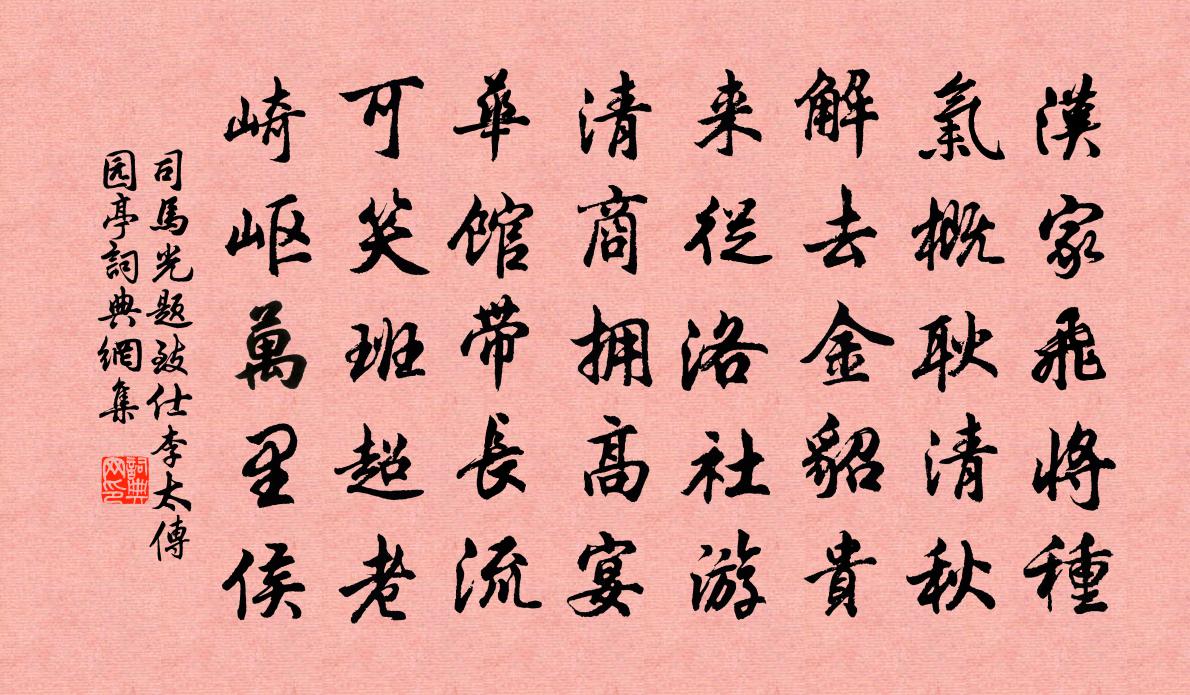 漢家飛將種
氣概耿清秋
解去金貂貴
来從洛社游
清商拥高宴
華馆带長流
可笑班超老
崎岖萬里侯
司馬光题致仕李太傅
园亭詞典網集
詞典网印